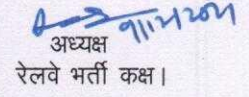 अध्यक्ष
रेलवे भर्ती कक्ष।